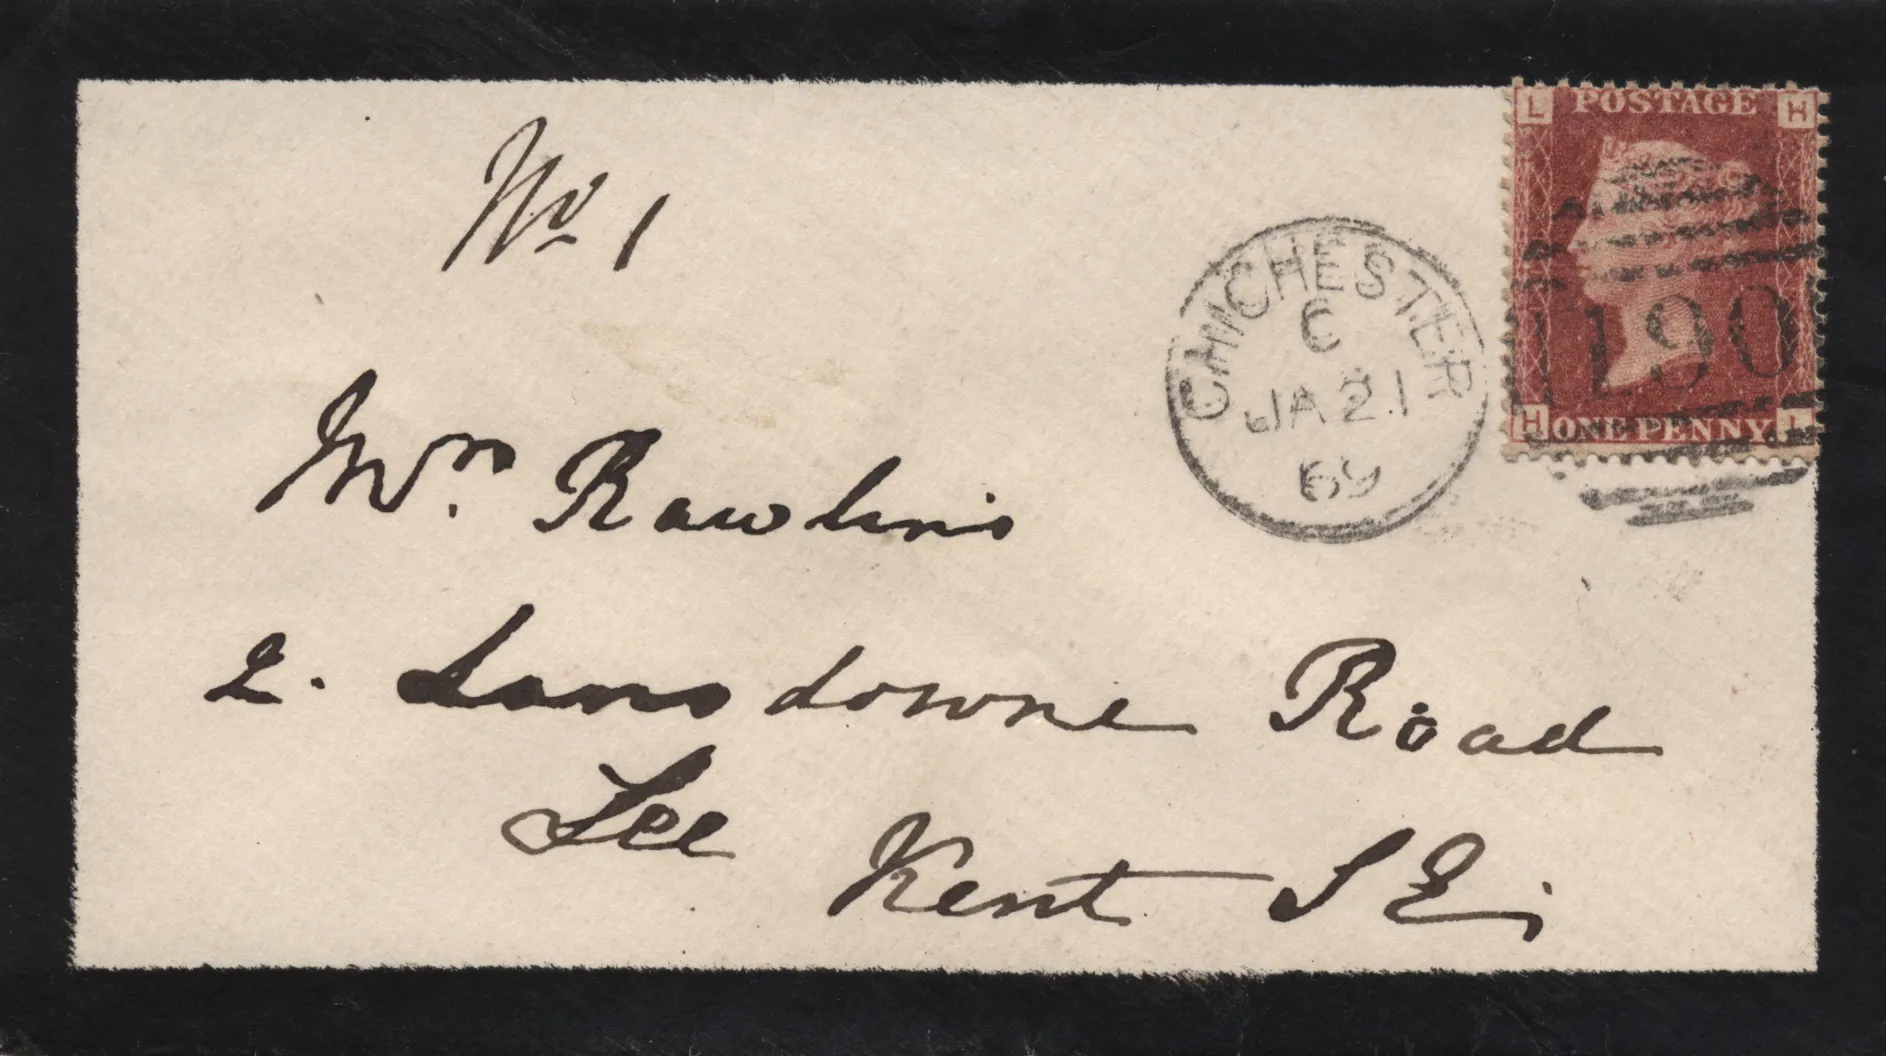 No 1
L POSTAGE H
CHICHESTER
C
JA 21
69
190
H ONE PENNY L
Mrs. Rawlins
2. Lansdowne Road
Lee
Kent S E